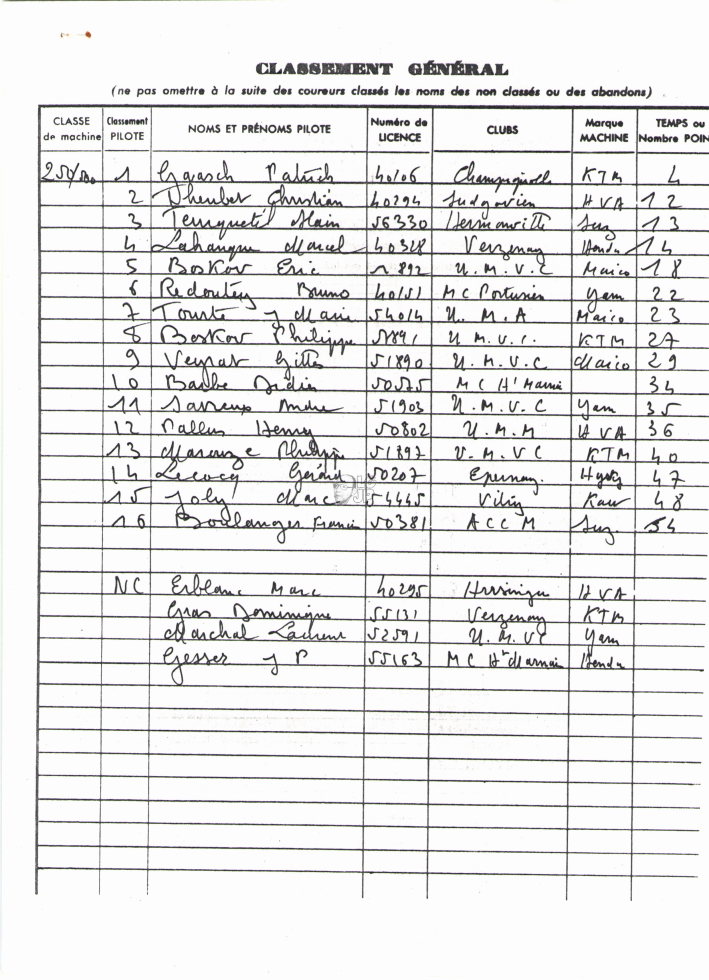 CLASSEMENT GÉNÉRAL
(ne pas omettre à la suite des coureurs classés les noms des non classés ou des abandons)
CLASSE de machine Classement PILOTE NOMS ET PRÉNOMS PILOTE Numéro de LICENCE CLUBS Marque MACHINE TEMPS ou Nombre POIN
1 Patrick 40106 KTM 4
2 Christian 40294 Sudgovien HVA 12
3 Alain 56330 Suz 13
4 Marcel 40328 Verzenay Honda 14
5 Boskov Eric 892 U.M.V.C Maico 18
6 Bruno 40151 MC Portusien Yam 22
7 54014 U.M.A Maico 23
8 Boskov Philippe 51891 U.M.V.C. KTM 27
9 Veyrat Gilles 51890 U.M.V.C Maico 29
10 Barbe Didier 50575 MC Hte Marne 34
11 André 51903 U.M.V.C Yam 35
12 Henry 50802 U.M.M HVA 36
13 Philippe 51897 U.M.V.C KTM 40
14 Lecocq Gérard 50207 Epernay. 47
15 Joly Marc 54445 Vitry Kaw 48
16 Boulanger Francis 50381 ACCM Suz. 54
NC Erblanc Marc 40295 HVA
Gras Dominique 55131 Verzenay KTM
Marchal Laurent 52591 U.M.VC Yam
Gesser J P 55163 MC Hte Marnais Honda